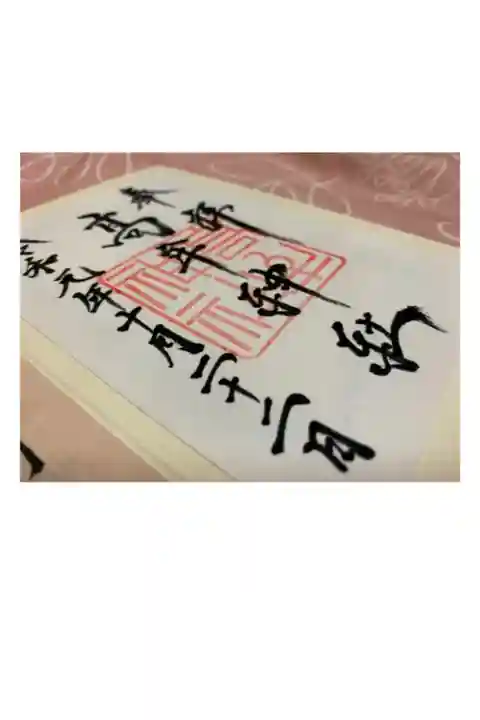 奉拝
高牟神社
令和元年十月二十二日